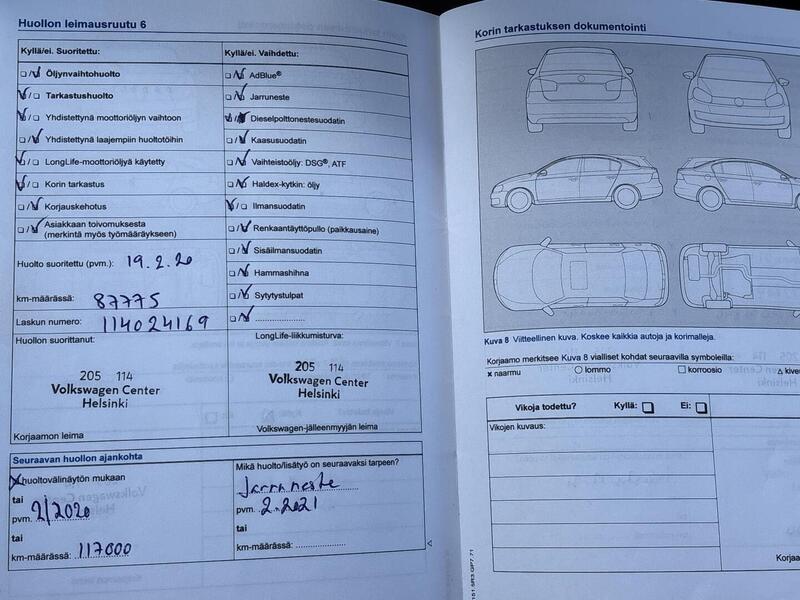 Huollon leimausruutu 6
Kyllä/ei. Suoritettu:
Öljynvaihtohuolto
Tarkastushuolto
Yhdistettynä moottoriöljyn vaihtoon
Yhdistettynä laajempiin huoltotöihin
LongLife-moottoriöljyä käytetty
Korin tarkastus
Korjauskehotus
Asiakkaan toivomuksesta
(merkintä myös työmääräykseen)
Huolto suoritettu (pvm.): 19.2.20
km-määrässä: 87775
Laskun numero: 114024169
Huollon suorittanut:
205 114
Volkswagen Center
Helsinki
Korjaamon leima
Kyllä/ei. Vaihdettu:
AdBlue®
Jarruneste
Dieselpolttonestesuodatin
Kaasusuodatin
Vaihteistoöljy: DSG®, ATF
Haldex-kytkin: öljy
Ilmansuodatin
Renkaantäyttöpullo (paikkausaine)
Sisäilmansuodatin
Hammashihna
Sytytystulpat
LongLife-liikkumisturva:
205 114
Volkswagen Center
Helsinki
Volkswagen-jälleenmyyjän leima
Seuraavan huollon ajankohta
huoltovälinäytön mukaan
tai
pvm. 2/2020
tai
km-määrässä: 117000
Mikä huolto/lisätyö on seuraavaksi tarpeen?
Jarruneste
pvm. 2.2021
tai
km-määrässä:
Korin tarkastuksen dokumentointi
Kuva 8 Viitteellinen kuva. Koskee kaikkia autoja ja korimalleja.
Korjaamo merkitsee Kuva 8 vialliset kohdat seuraavilla symboleilla:
x naarmu ○ lommo □ korroosio △ kive
Vikoja todettu? Kyllä: Ei:
Vikojen kuvaus:
Korjaa
151.5R3.GP7.71